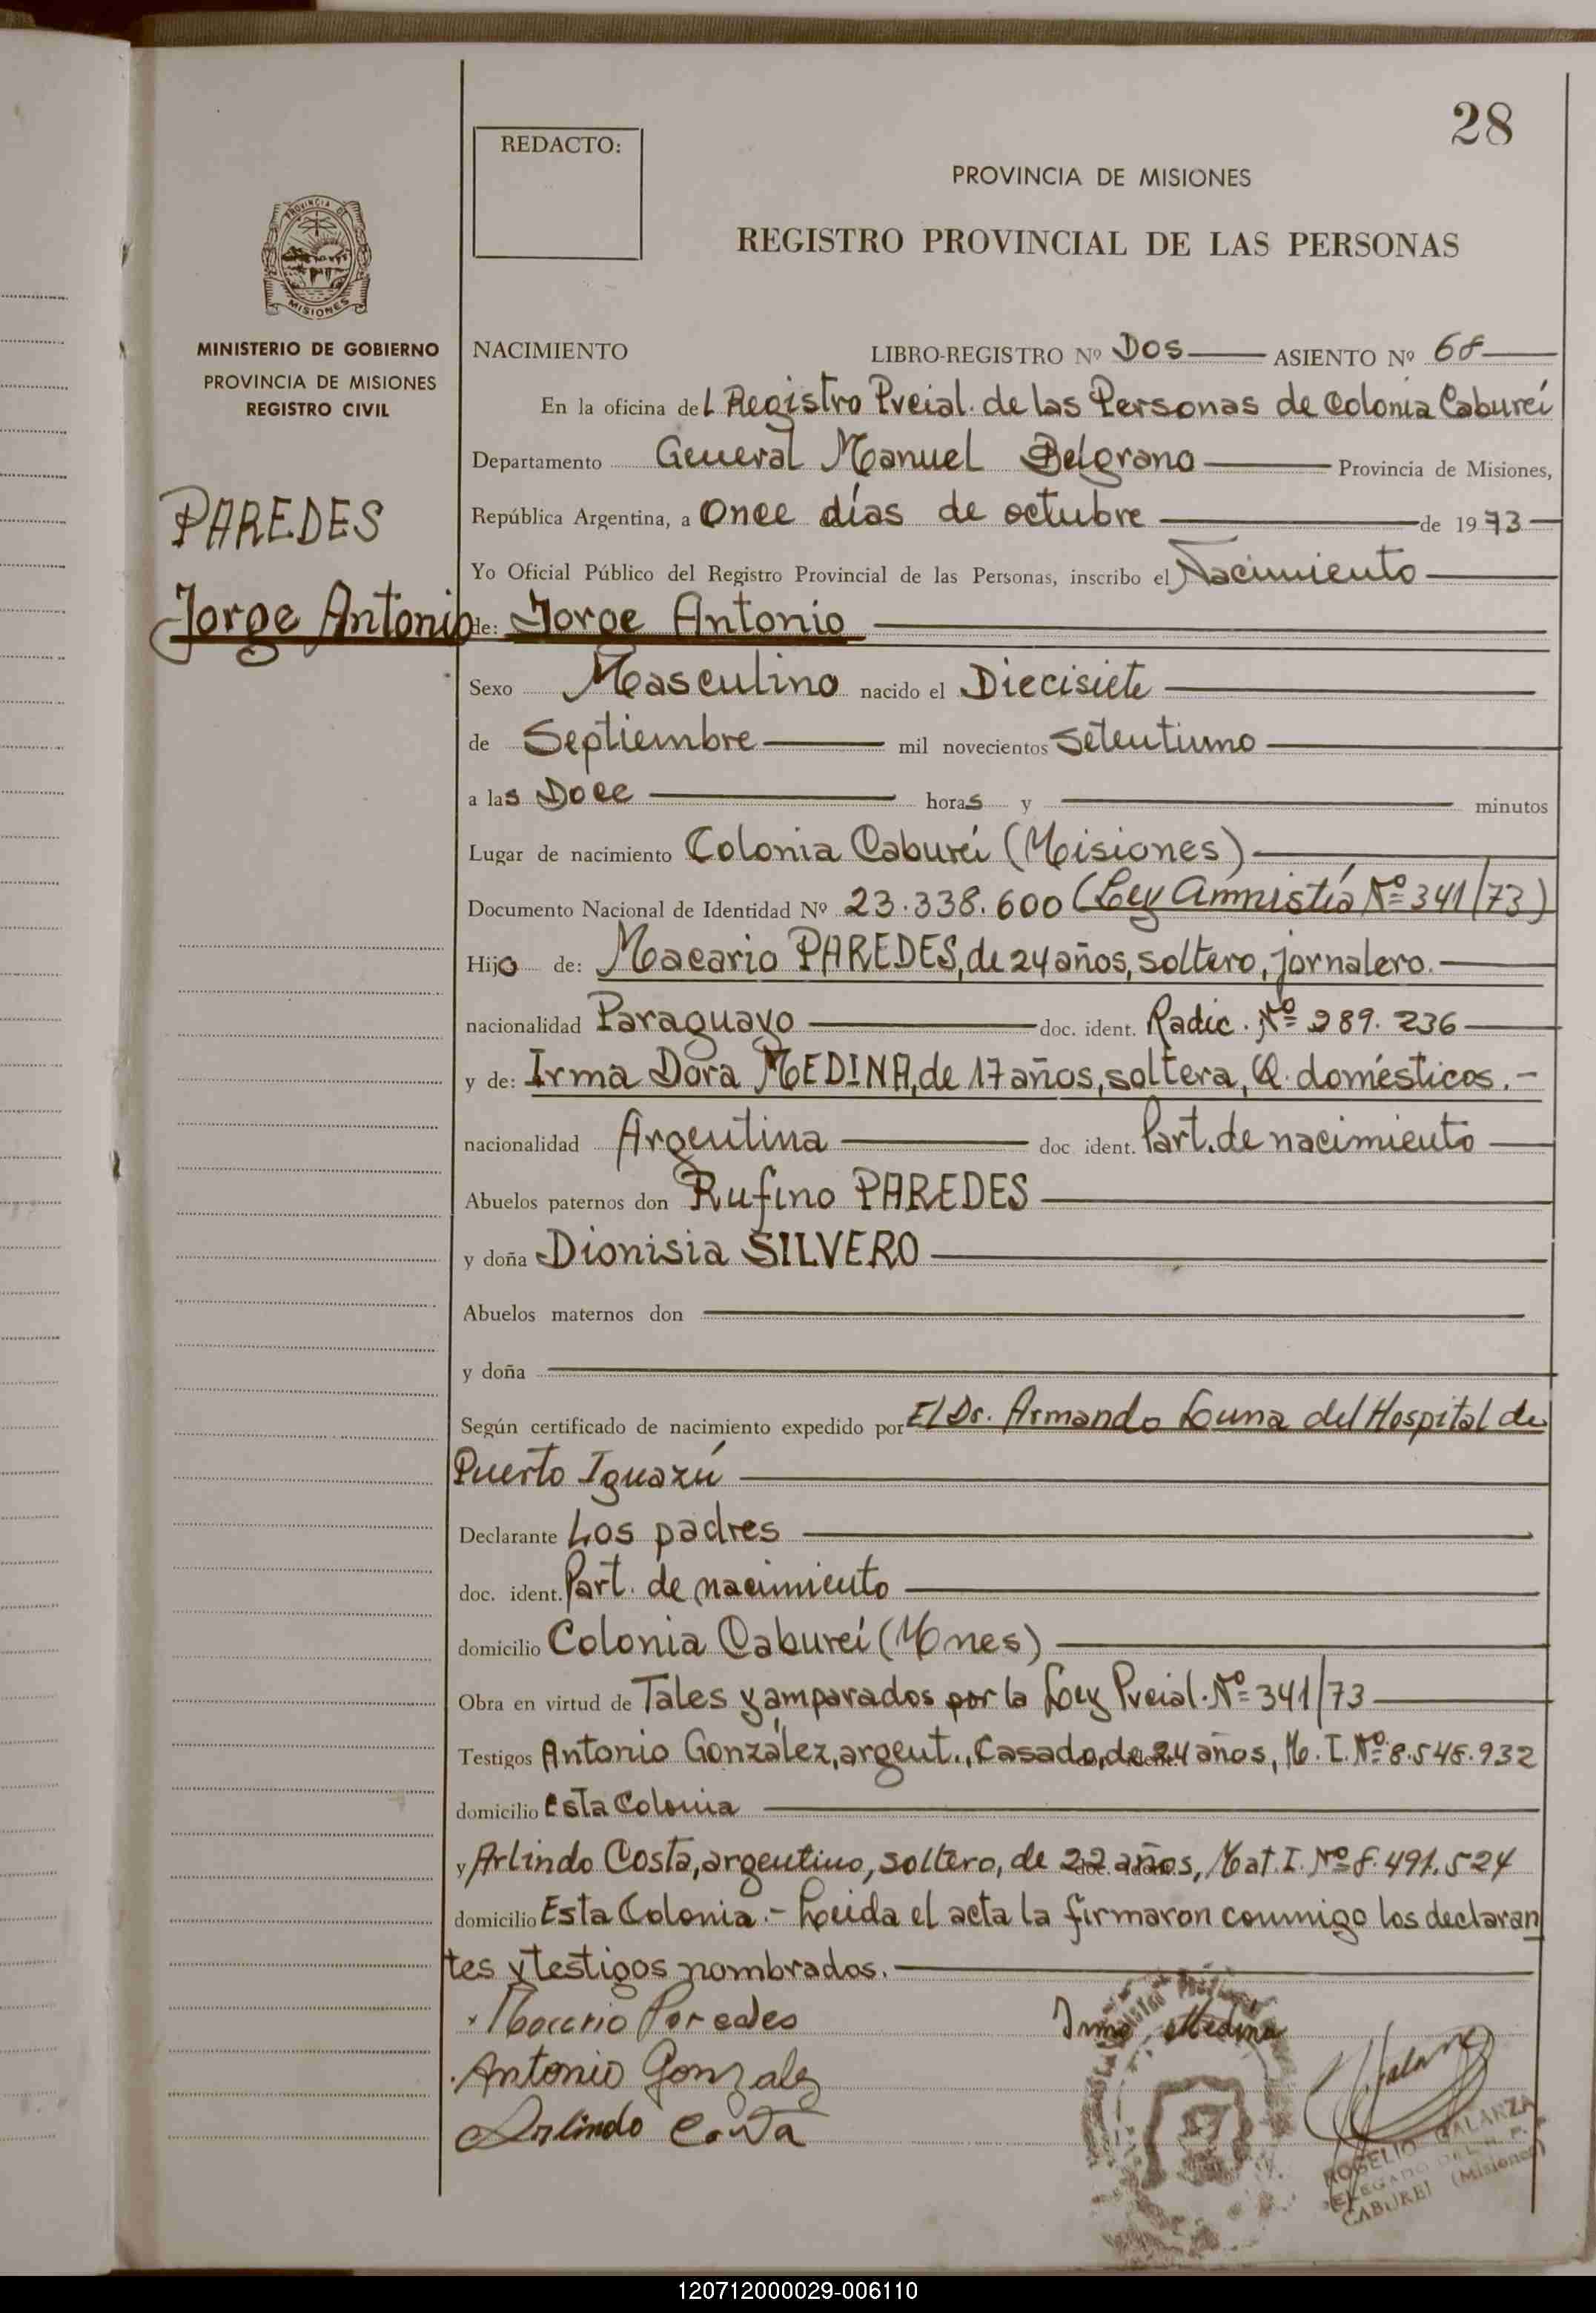 28
REDACTO:
PROVINCIA DE MISIONES
REGISTRO PROVINCIAL DE LAS PERSONAS
PROVINCIA DE
MISIONES
MINISTERIO DE GOBIERNO
PROVINCIA DE MISIONES
REGISTRO CIVIL
PAREDES
Jorge Antonio
NACIMIENTO LIBRO-REGISTRO Nº Dos ASIENTO Nº 68
En la oficina del Registro Prcial. de las Personas de Colonia Cabureí
Departamento General Manuel Belgrano Provincia de Misiones,
República Argentina, a once días de octubre de 1973
Yo Oficial Público del Registro Provincial de las Personas, inscribo el Nacimiento
de: Jorge Antonio
Sexo Masculino nacido el Diecisiete
de Septiembre mil novecientos setentiuno
a las Doce horas y minutos
Lugar de nacimiento Colonia Cabureí (Misiones)
Documento Nacional de Identidad Nº 23.338.600 (Ley Amnistía Nº 341/73)
Hijo de: Macario PAREDES, de 24 años, soltero, jornalero.
nacionalidad Paraguayo doc. ident. Radic. Nº 989.236
y de: Irma Dora MEDINA, de 17 años, soltera, Q. domésticos.-
nacionalidad Argentina doc ident. Part. de nacimiento
Abuelos paternos don Rufino PAREDES
y doña Dionisia SILVERO
Abuelos maternos don
y doña
Según certificado de nacimiento expedido por El Dr. Armando Luna del Hospital de
Puerto Iguazú
Declarante Los padres
doc. ident. Part. de nacimiento
domicilio Colonia Cabureí (Mnes)
Obra en virtud de Tales y amparados por la Ley Prcial. Nº 341/73
Testigos Antonio González, argent., Casado, de 24 años, M. I. Nº 8.548.932
domicilio esta Colonia
y Arlindo Costa, argentino, soltero, de 22 años, Mat. I. Nº 8.491.524
domicilio Esta Colonia.- Leida el acta la firmaron conmigo los declaran
tes y testigos nombrados.
Macario Paredes
Irma Medina
Antonio Gonzalez
Galarza
Arlindo Costa
ROGELIO GALARZA
DELEGADO DEL R. P.
CABUREI (Misiones)
120712000029-006110